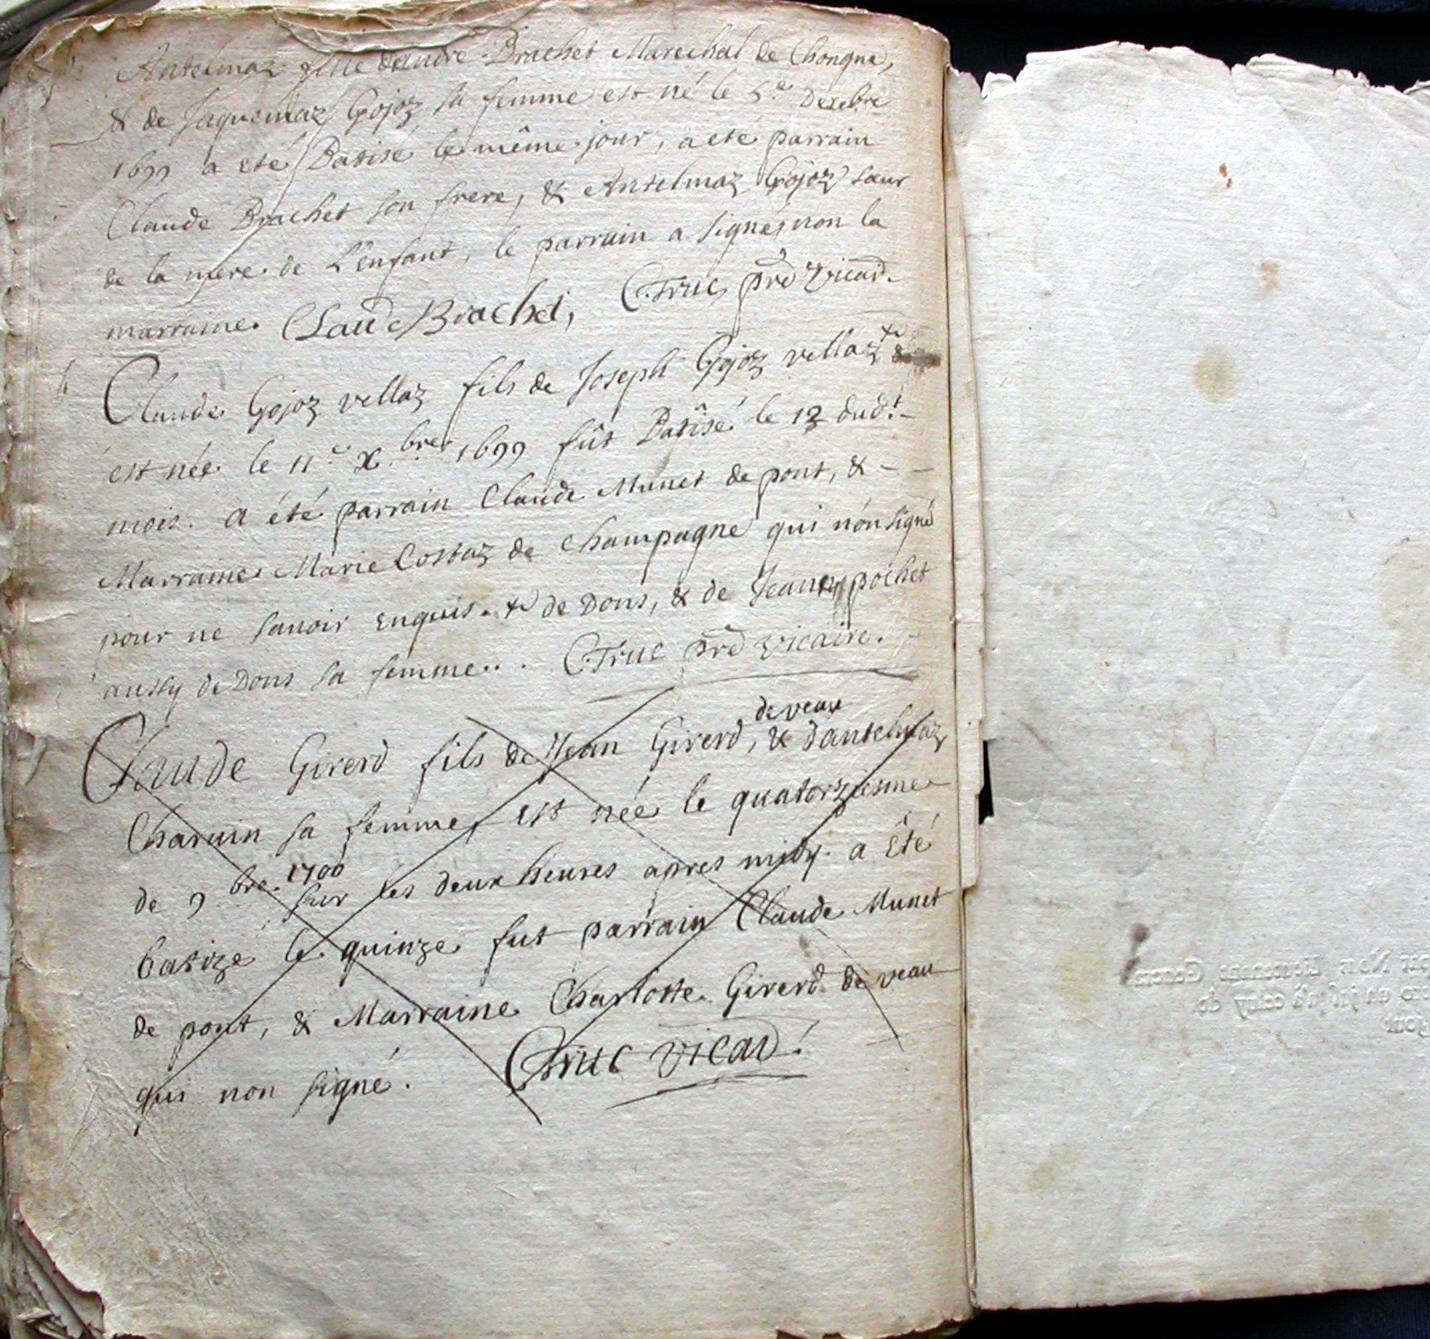 Antelmaz fille dandre Brachet Marechal de Chongne,
& de Jaquemaz Gojoz sa femme est né le 5e Decebre
1699 a eté Batisé le même jour, a eté parrain
Claude Brachet son frere, & Antelmaz Gojoz saur
de la mere de L'enfant, le parrain a signe, non la
marraine. Claude Brachet, C. Truc pre Vicair.
Claude Gojoz vellaz fils de Joseph Gojoz vellaz
est née le 11e Xbre 1699 fût Batîsé le 12 dudt
mois. a été parrain Claude Munet de pont, &
Marraine Marie Costaz de Champagne qui nón signé
pour ne savoir enquis. de Dons, & de Jeanne pochet
aussy de Dons sa femme. C. Truc pre Vicaire.
Claude Girerd fils de Jean Girerd, de veau & dantelmaz
Charuin sa femme, est née le quatorziesme
de 9bre 1700 sur les deux heures apres midy. a Êté
batizé le quinze fut parrain Claude Munet
de pont, & Marraine Charlotte Girerd de veau
qui non signé. C. Truc vicair